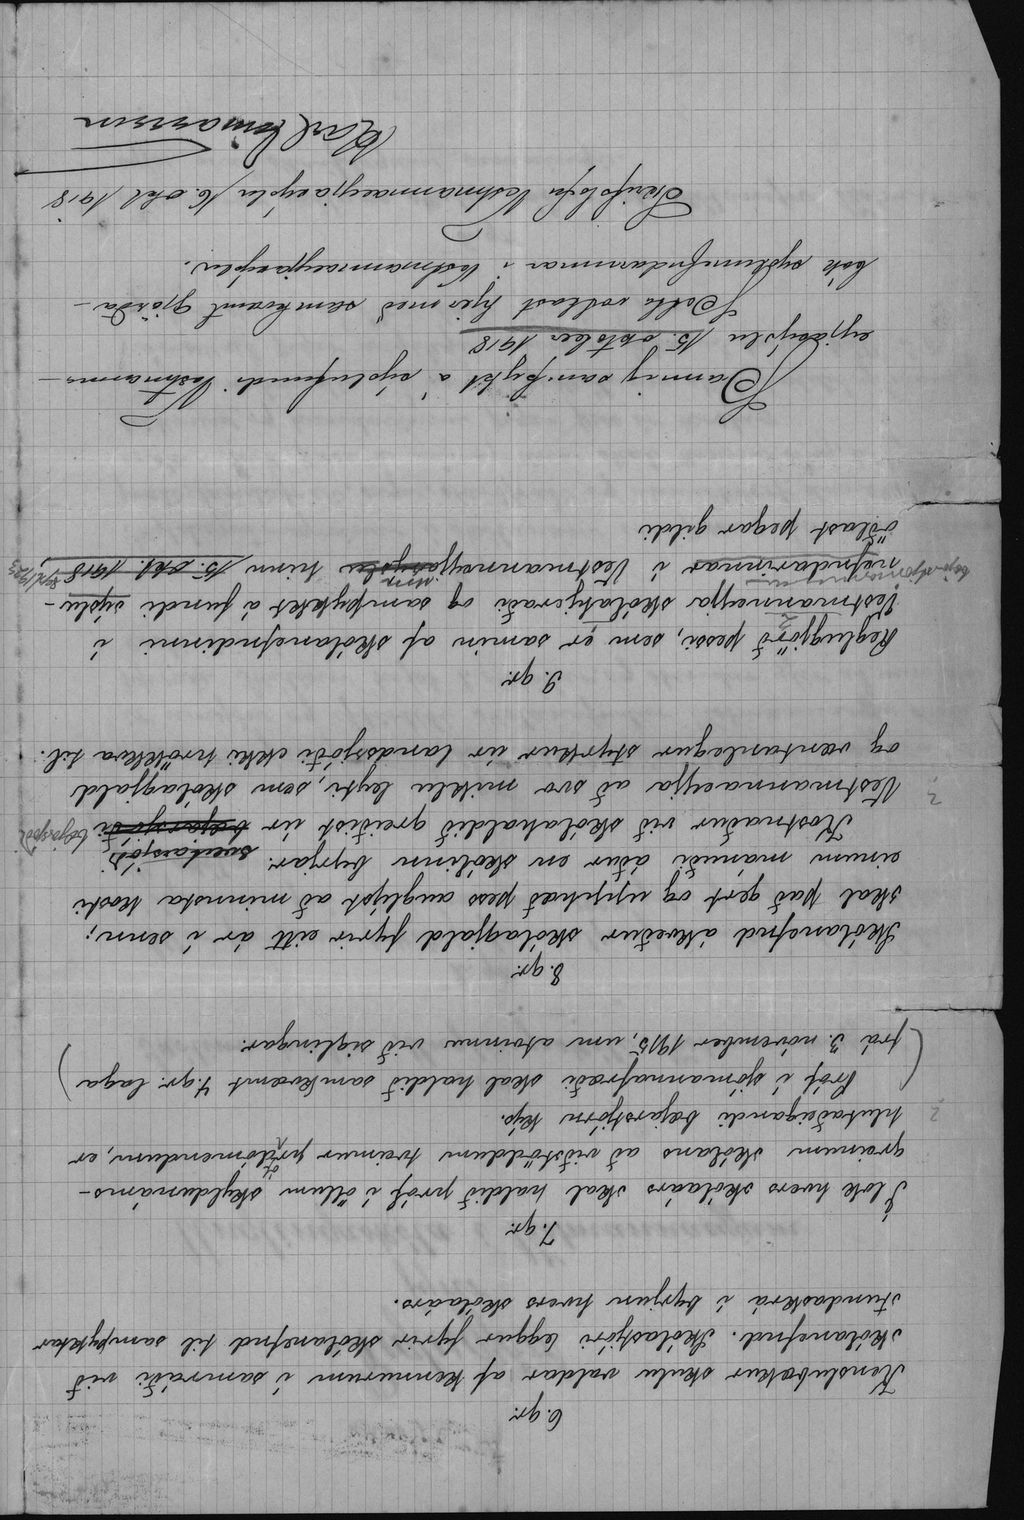 6. gr.
Kenslubækur skulu valdar af kennurum í samráði við
skólanefnd. Skólastjóri leggur fyrir skólanefnd til samþyktar
stundaskrá í byrjun hvers skólaárs.
7. gr.
Í lok hvers skólaárs skal haldið próf í öllum skyldunáms-
greinum skólans að viðstöddum tveimur prófdómendum, er
hlutaðeigandi bæjarstjórn kýs.
(Próf í sjómannafræði skal haldið samkvæmt 4. gr. laga
frá 3. nóvember 1915, um atvinnu við siglingar.)
8. gr.
Skólanefnd ákveður skólagjald fyrir eitt ár í senn;
skal það gert og upphæð þess auglýst að minnsta kosti
einum mánuði áður en skólinn byrjar.
sveitarsjóði
Kostnaður við skólahaldið greiðist úr bæjarsjóði bæjarsjóði
Vestmannaeyja að svo miklu leyti, sem skólagjald
og væntanlegur styrkur úr landssjóði ekki hrökkva til.
9. gr.
Reglugjörð þessi, sem er samin af skólanefndinni í
Vestmannaeyja skólahjeraði og samþykkt á fundi sýslu-
bæjarstjórnarinnar
nefndarinnar í Vestmannaeyjasýslu hinn 15. okt. 1918,
öðlast þegar gildi
Þannig samþykt á sýslufundi Vestmanna-
eyjasýslu 15. október 1918
Þetta vottast hjer með samkvæmt gjörða-
bók sýslunefndarinnar í Vestmannaeyjasýslu.
Skrifstofu Vestmannaeyjasýslu 16. okt 1918
Karl Einarsson